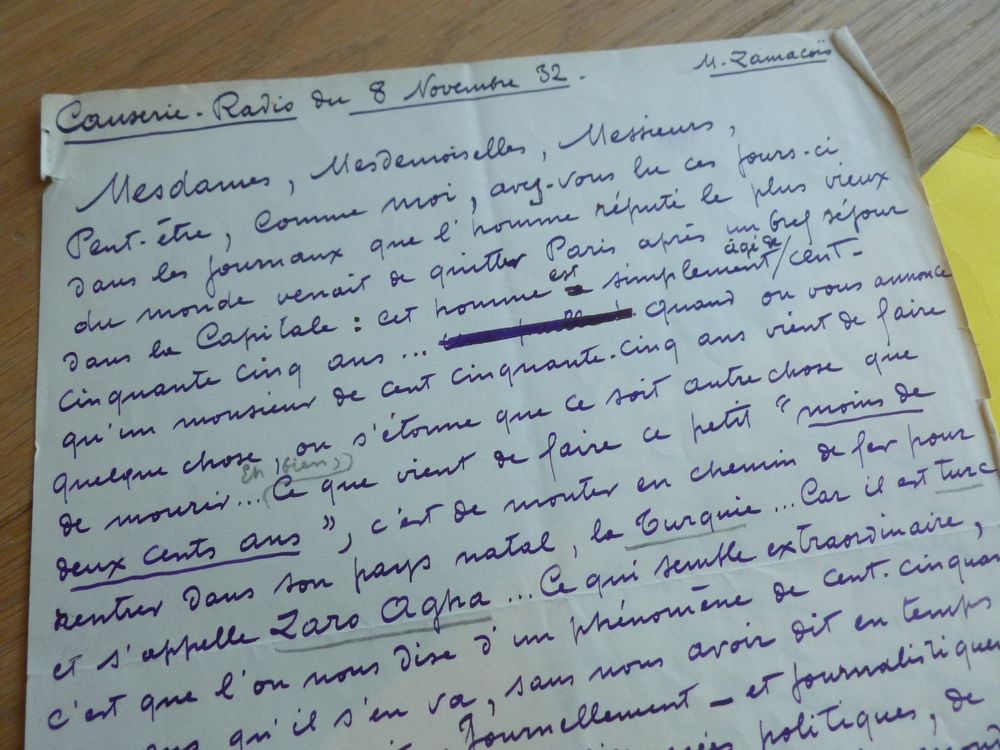 Causerie-Radio du 8 Novembre 32.
M. Zamacoïs
Mesdames, Mesdemoiselles, Messieurs,
Peut-être, comme moi, avez-vous lu ces jours-ci
dans les journaux que l'homme réputé le plus vieux
du monde venait de quitter Paris après un bref séjour
dans la Capitale : cet homme est simplement/ âgé de cent-
cinquante cinq ans... Quand on vous annonce
qu'un monsieur de cent cinquante-cinq ans vient de faire
quelque chose, on s'étonne que ce soit autre chose que
de mourir... Eh bien, Ce que vient de faire ce petit "moins de
deux cents ans", c'est de monter en chemin de fer pour
rentrer dans son pays natal, la Turquie... Car il est turc
et s'appelle Zaro Agha... Ce qui semble extraordinaire,
c'est que l'on nous dise d'un phénomène de cent-cinquan
qu'il s'en va, sans nous avoir dit en temps
journellement — et journalistiquem
politiques, de